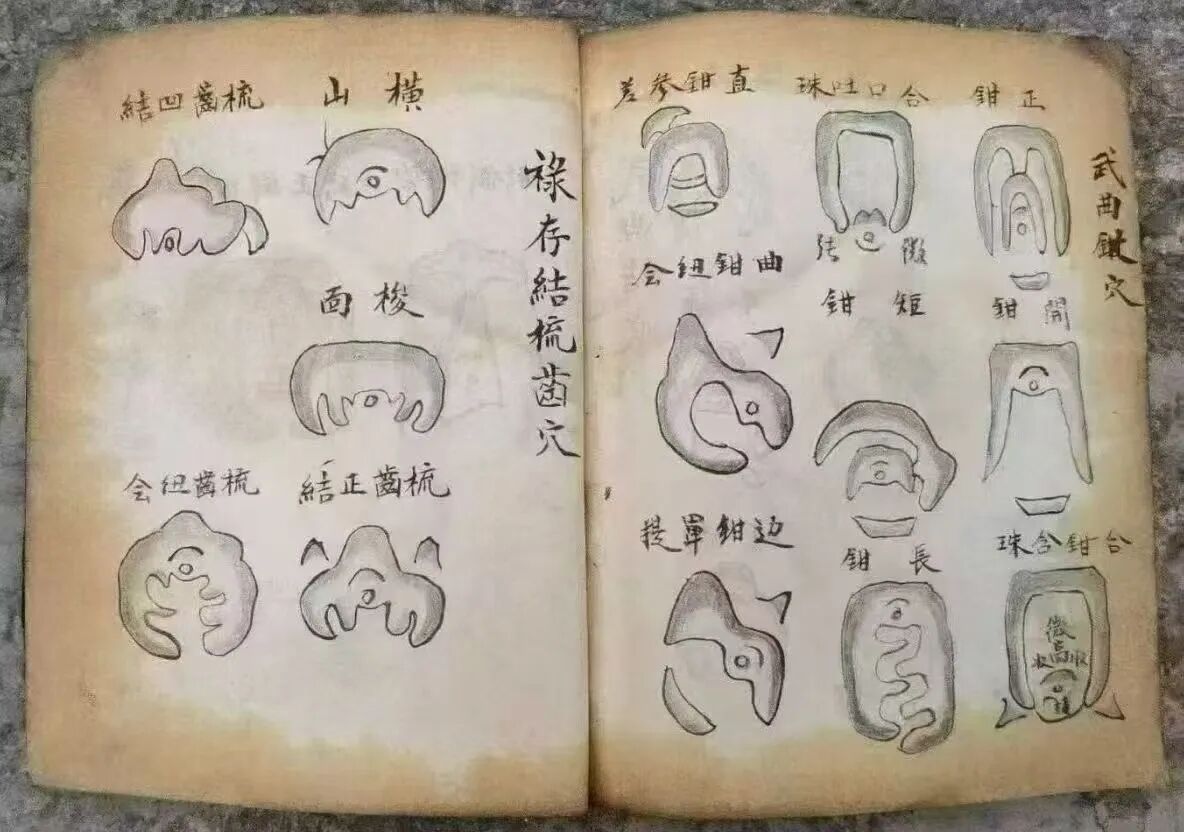 武曲鉗穴
正鉗
開鉗
合鉗含珠
微高
合口吐珠
微張
短鉗
長鉗
直鉗參差
曲鉗紐会
边鉗單提
祿存結梳齒穴
橫山
梭面
梳齒正結
梳齒凹結
梳齒紐会